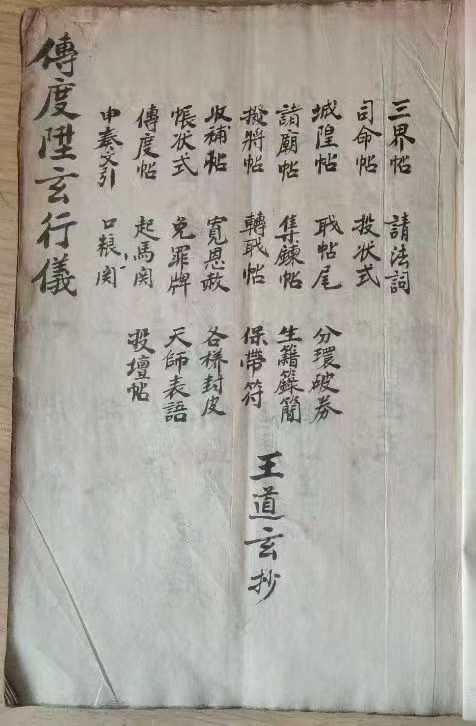 三界帖 請法詞
司命帖 投状式
城隍帖 戢帖尾 分環破券
諸廟帖 集鍊帖 生籍籙簡
撥將帖 轉戢帖 保帶符
收補帖 寬恩赦 各樣封皮
悵状式 免罪牌 天師表語
傳度帖 起馬関 投壇帖
申奏文引 口粮関
王道玄抄
傳度陞玄行儀